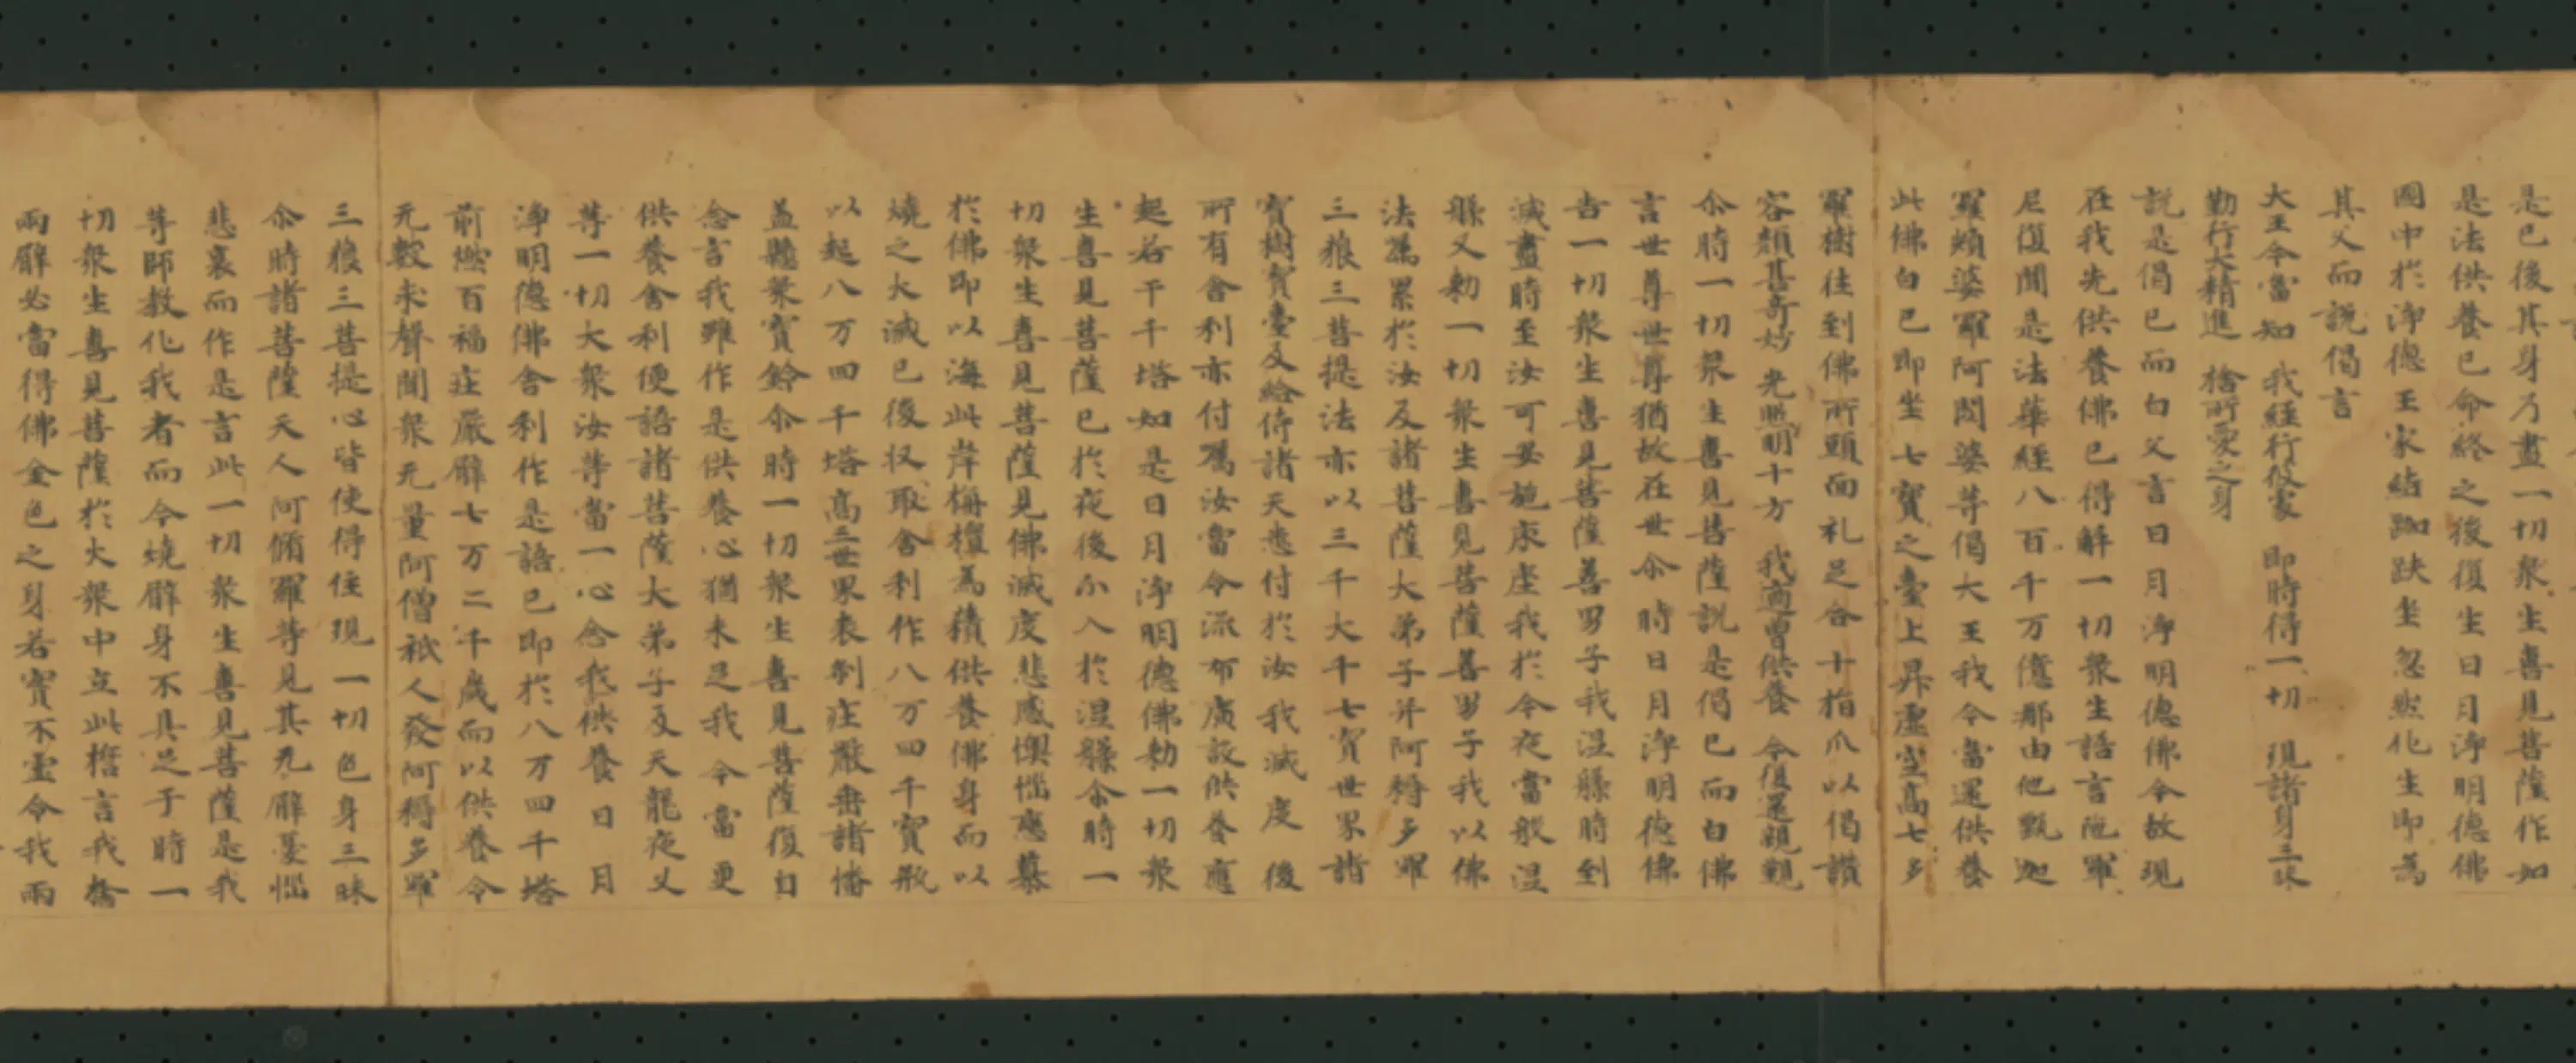 是已後其身乃盡一切衆生憙見菩薩作如
是法供養已命終之後復生日月淨明德佛
國中於淨德王家結跏趺坐忽然化生即爲
其父而說偈言
大王今當知 我經行彼處 即時得一切 現諸身三昧
勤行大精進 捨所愛之身
說是偈已而白父言日月淨明德佛今故現
在我先供養佛已得解一切衆生語言陁羅
尼復聞是法華經八百千万億那由他甄迦
羅頻婆羅阿閦婆等偈大王我今當還供養
此佛白已即坐七寶之臺上昇虛空高七多
羅樹往到佛所頭面礼足合十指爪以偈讚
容顏甚奇妙 光照明十方 我適曾供養 今復還親覲
尒時一切衆生憙見菩薩說是偈已而白佛
言世尊世尊猶故在世尒時日月淨明德佛
告一切衆生憙見菩薩善男子我涅槃時到
滅盡時至汝可安施床座我於今夜當般涅
槃又勑一切衆生憙見菩薩善男子我以佛
法囑累於汝及諸菩薩大弟子幷阿耨多羅
三藐三菩提法亦以三千大千七寶世界諸
寶樹寶臺及給侍諸天悉付於汝我滅度後
所有舍利亦付囑汝當令流布廣設供養應
起若干千塔如是日月淨明德佛勑一切衆
生憙見菩薩已於夜後分入於涅槃尒時一
切衆生憙見菩薩見佛滅度悲感懊惱戀慕
於佛即以海此岸栴檀爲𧂐供養佛身而以
燒之火滅已後收取舍利作八万四千寶瓶
以起八万四千塔高三世界表刹莊嚴垂諸幡
蓋懸衆寶鈴尒時一切衆生憙見菩薩復自
念言我雖作是供養心猶未足我今當更
供養舍利便語諸菩薩大弟子及天龍夜叉
等一切大衆汝等當一心念我供養日月
淨明德佛舍利作是語已即於八万四千塔
前燃百福莊嚴臂七万二千歲而以供養令
无數求聲聞衆无量阿僧祇人發阿耨多羅
三藐三菩提心皆使得住現一切色身三昧
尒時諸菩薩天人阿脩羅等見其无臂憂惱
悲哀而作是言此一切衆生憙見菩薩是我
等師教化我者而今燒臂身不具足于時一
切衆生憙見菩薩於大衆中立此擔言我捨
兩臂必當得佛金色之身若實不虛令我兩